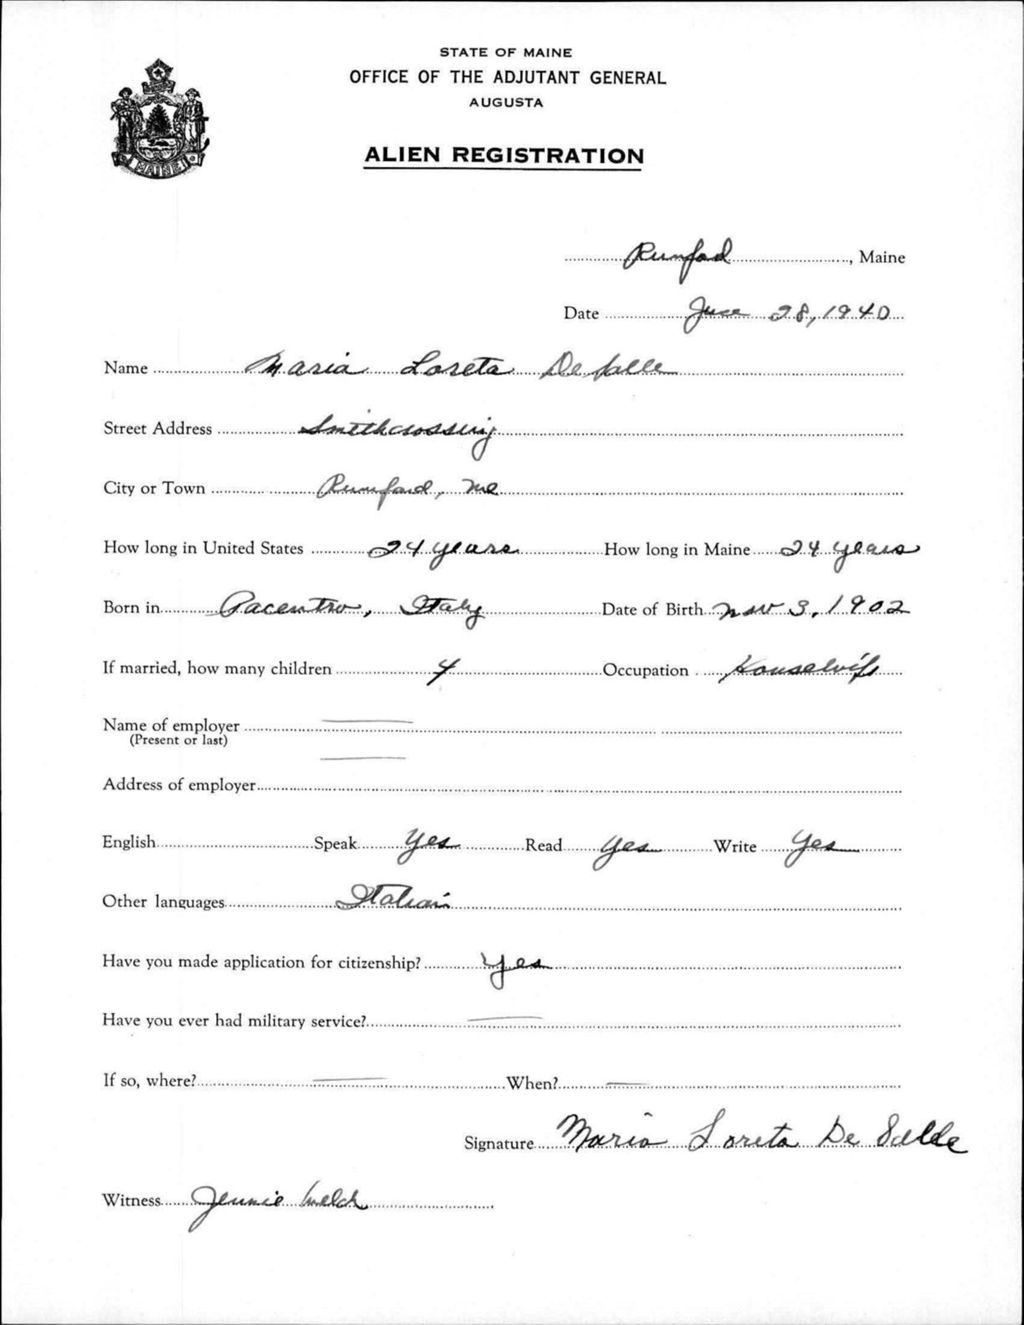 STATE OF MAINE
OFFICE OF THE ADJUTANT GENERAL
AUGUSTA
ALIEN REGISTRATION
MAINE
Rumford, Maine
Date June 28, 1940
Name Maria Loreta De Salle
Street Address Smithcrossing
City or Town Rumford, Me
How long in United States 24 years How long in Maine 24 years
Born in Pacentro, Italy Date of Birth Nov 3, 1902
If married, how many children 4 Occupation Housewife
Name of employer
(Present or last)
Address of employer
English Speak Yes Read Yes Write Yes
Other languages Italian
Have you made application for citizenship? Yes
Have you ever had military service?
If so, where? When?
Signature Maria Loreta De
Witness Jennie Welch